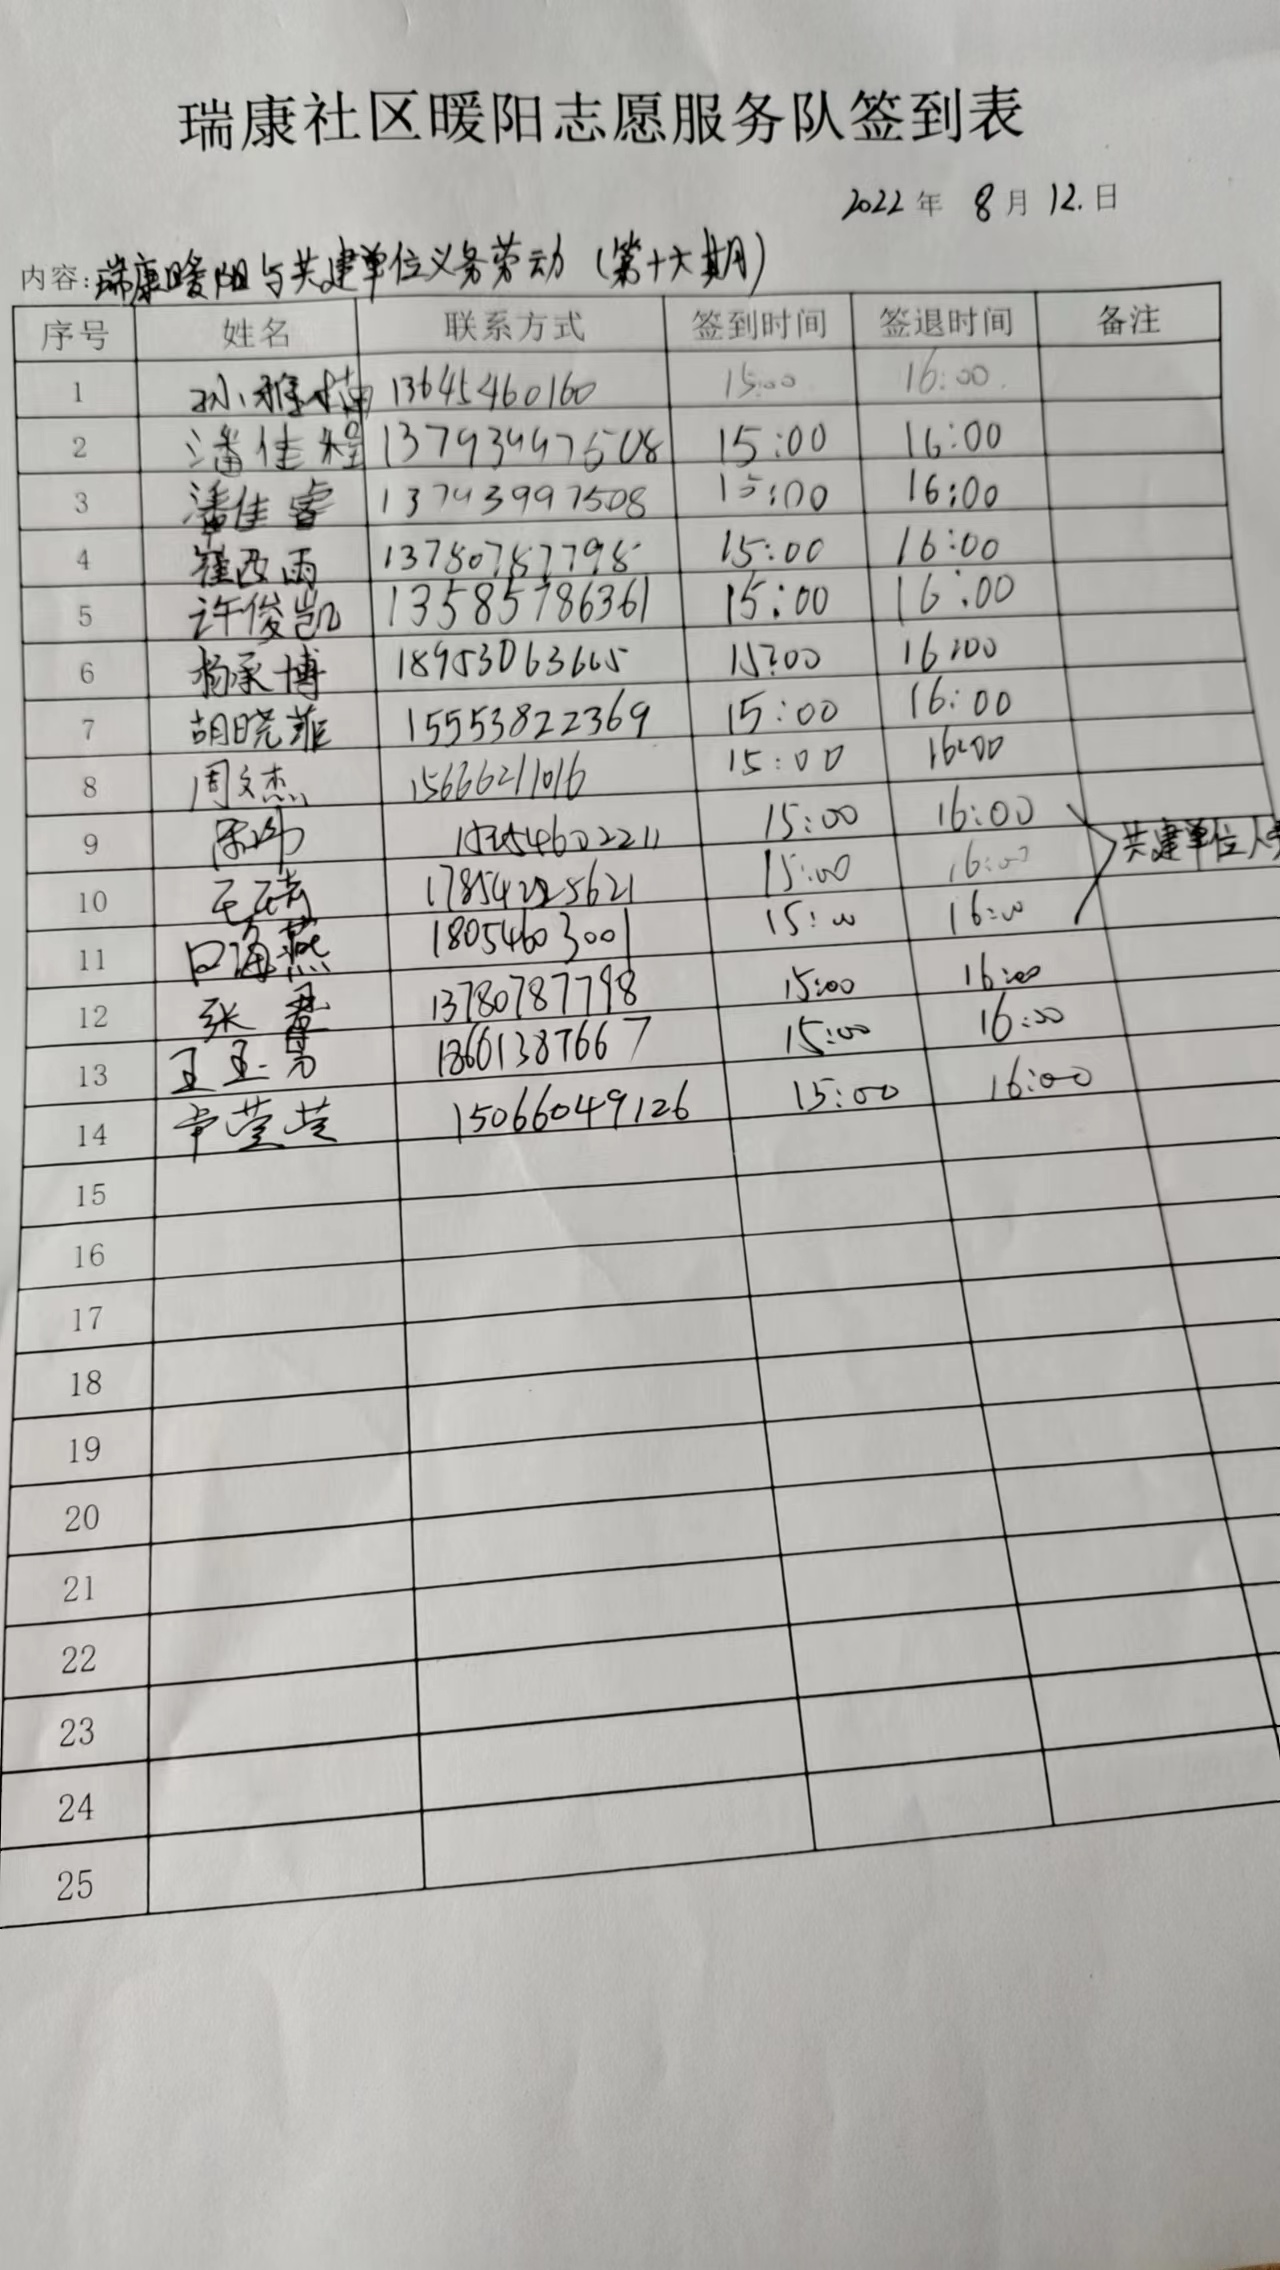 瑞康社区暖阳志愿服务队签到表
2022年 8月12.日
内容:瑞康暖阳与共建单位义务劳动(第十六期)
序号 姓名 联系方式 签到时间 签退时间 备注
1 孙雅楠 13645460160 15:00 16:00
2 潘佳程 13793997508 15:00 16:00
3 潘佳睿 13793997508 15:00 16:00
4 崔西雨 13780787798 15:00 16:00
5 许俊凯 13585786361 15:00 16:00
6 杨承博 18953063665 15:00 16:00
7 胡晓菲 15553822369 15:00 16:00
8 周文杰 15666211016 15:00 16:00
9 15:00 16:00 共建单位人
10 17854225621 15:00 16:00
11 海燕 18054603001 15:00 16:00
12 张 13780787798 15:00 16:00
13 王玉 18601387667 15:00 16:00
14 莹莹 15066049126 15:00 16:00
15
16
17
18
19
20
21
22
23
24
25